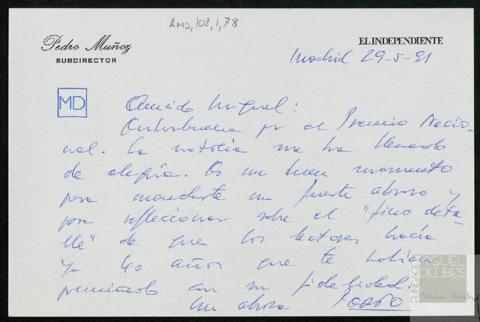 AMD, 108, 1, 78
Pedro Muñoz
SUBDIRECTOR
EL INDEPENDIENTE
Madrid 29-5-91
MD
Querido Miguel:
Enhorabuena por el Premio Nacio-
nal. La noticia me ha llenado
de alegría. Es un buen momento
para mandarte un fuerte abrazo y
para reflexionar sobre el "fino deta-
lle" de que los lectores hacía
ya 40 años que te habían
premiado con su fidelidad.
Un abrazo
FUNDACIÓN
MIGUEL
DELIBES